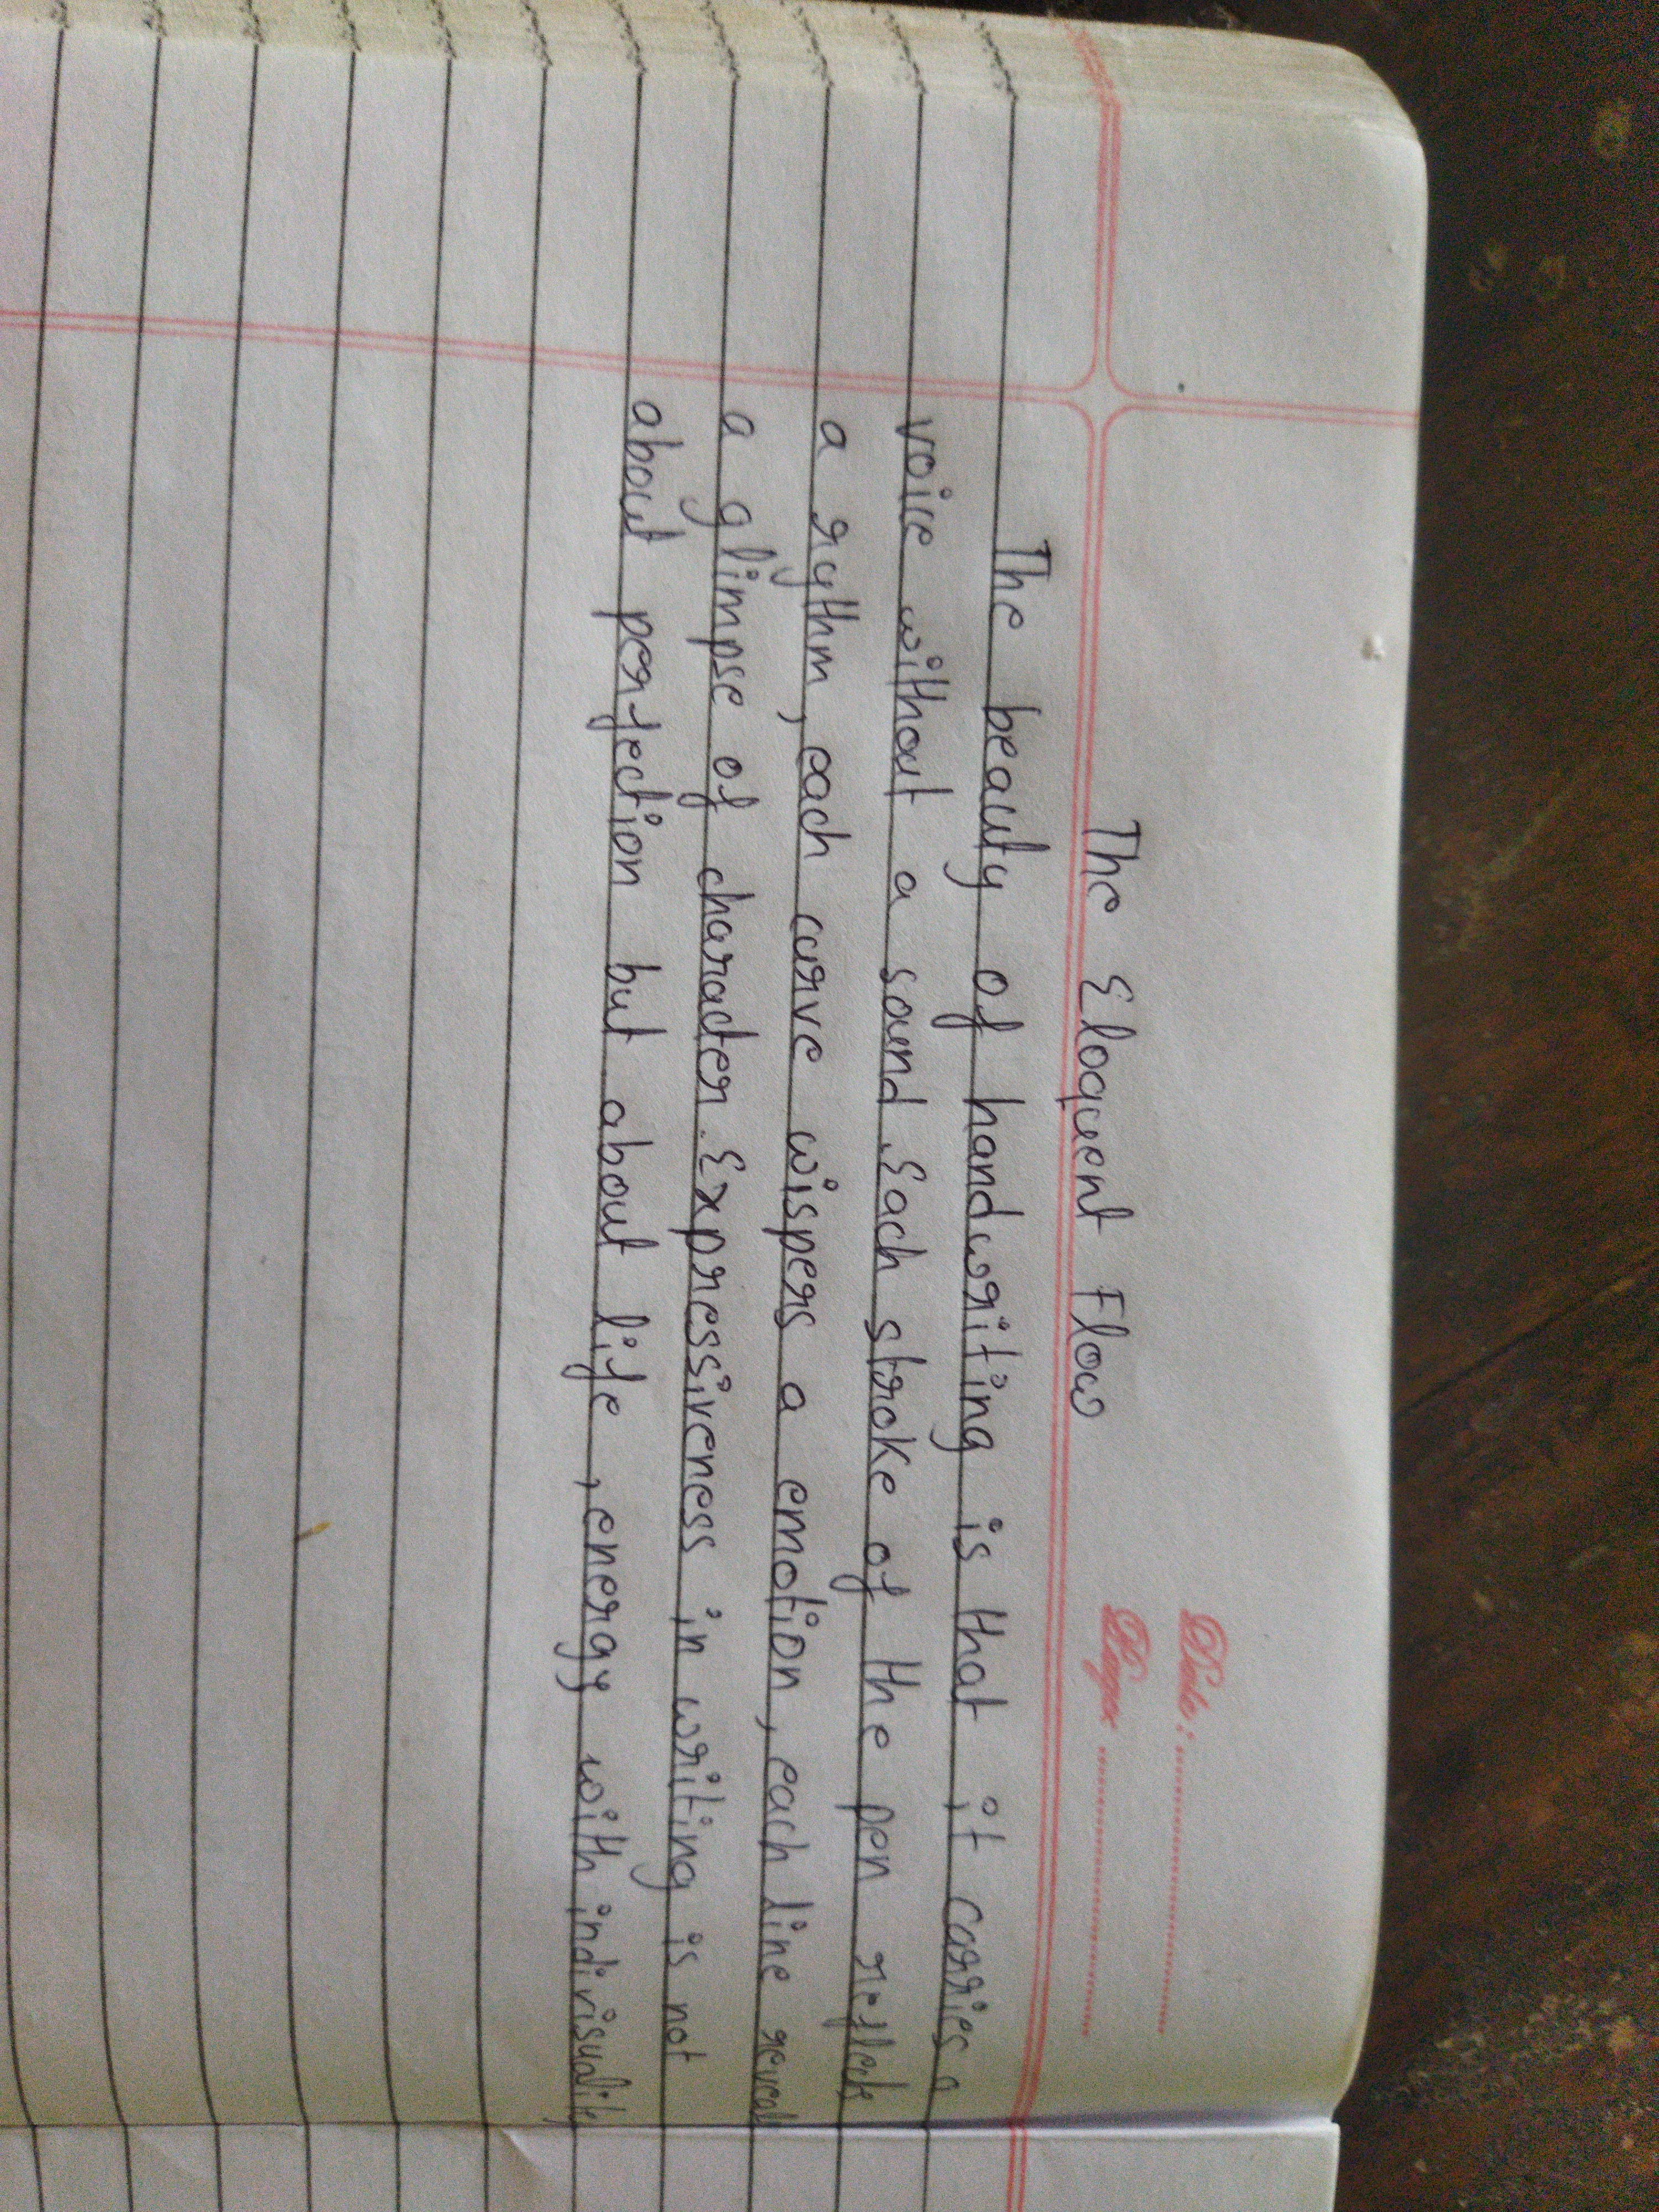 Date:
Page:
The Eloquent Flow
The beauty of handwriting is that it carries a
voice without a sound. Each stroke of the pen reflects
a rythm, each curve wispers a emotion, each line reveals
a glimpse of character. Expressiveness in writing is not
about perfection but about life, energy with indivisuality